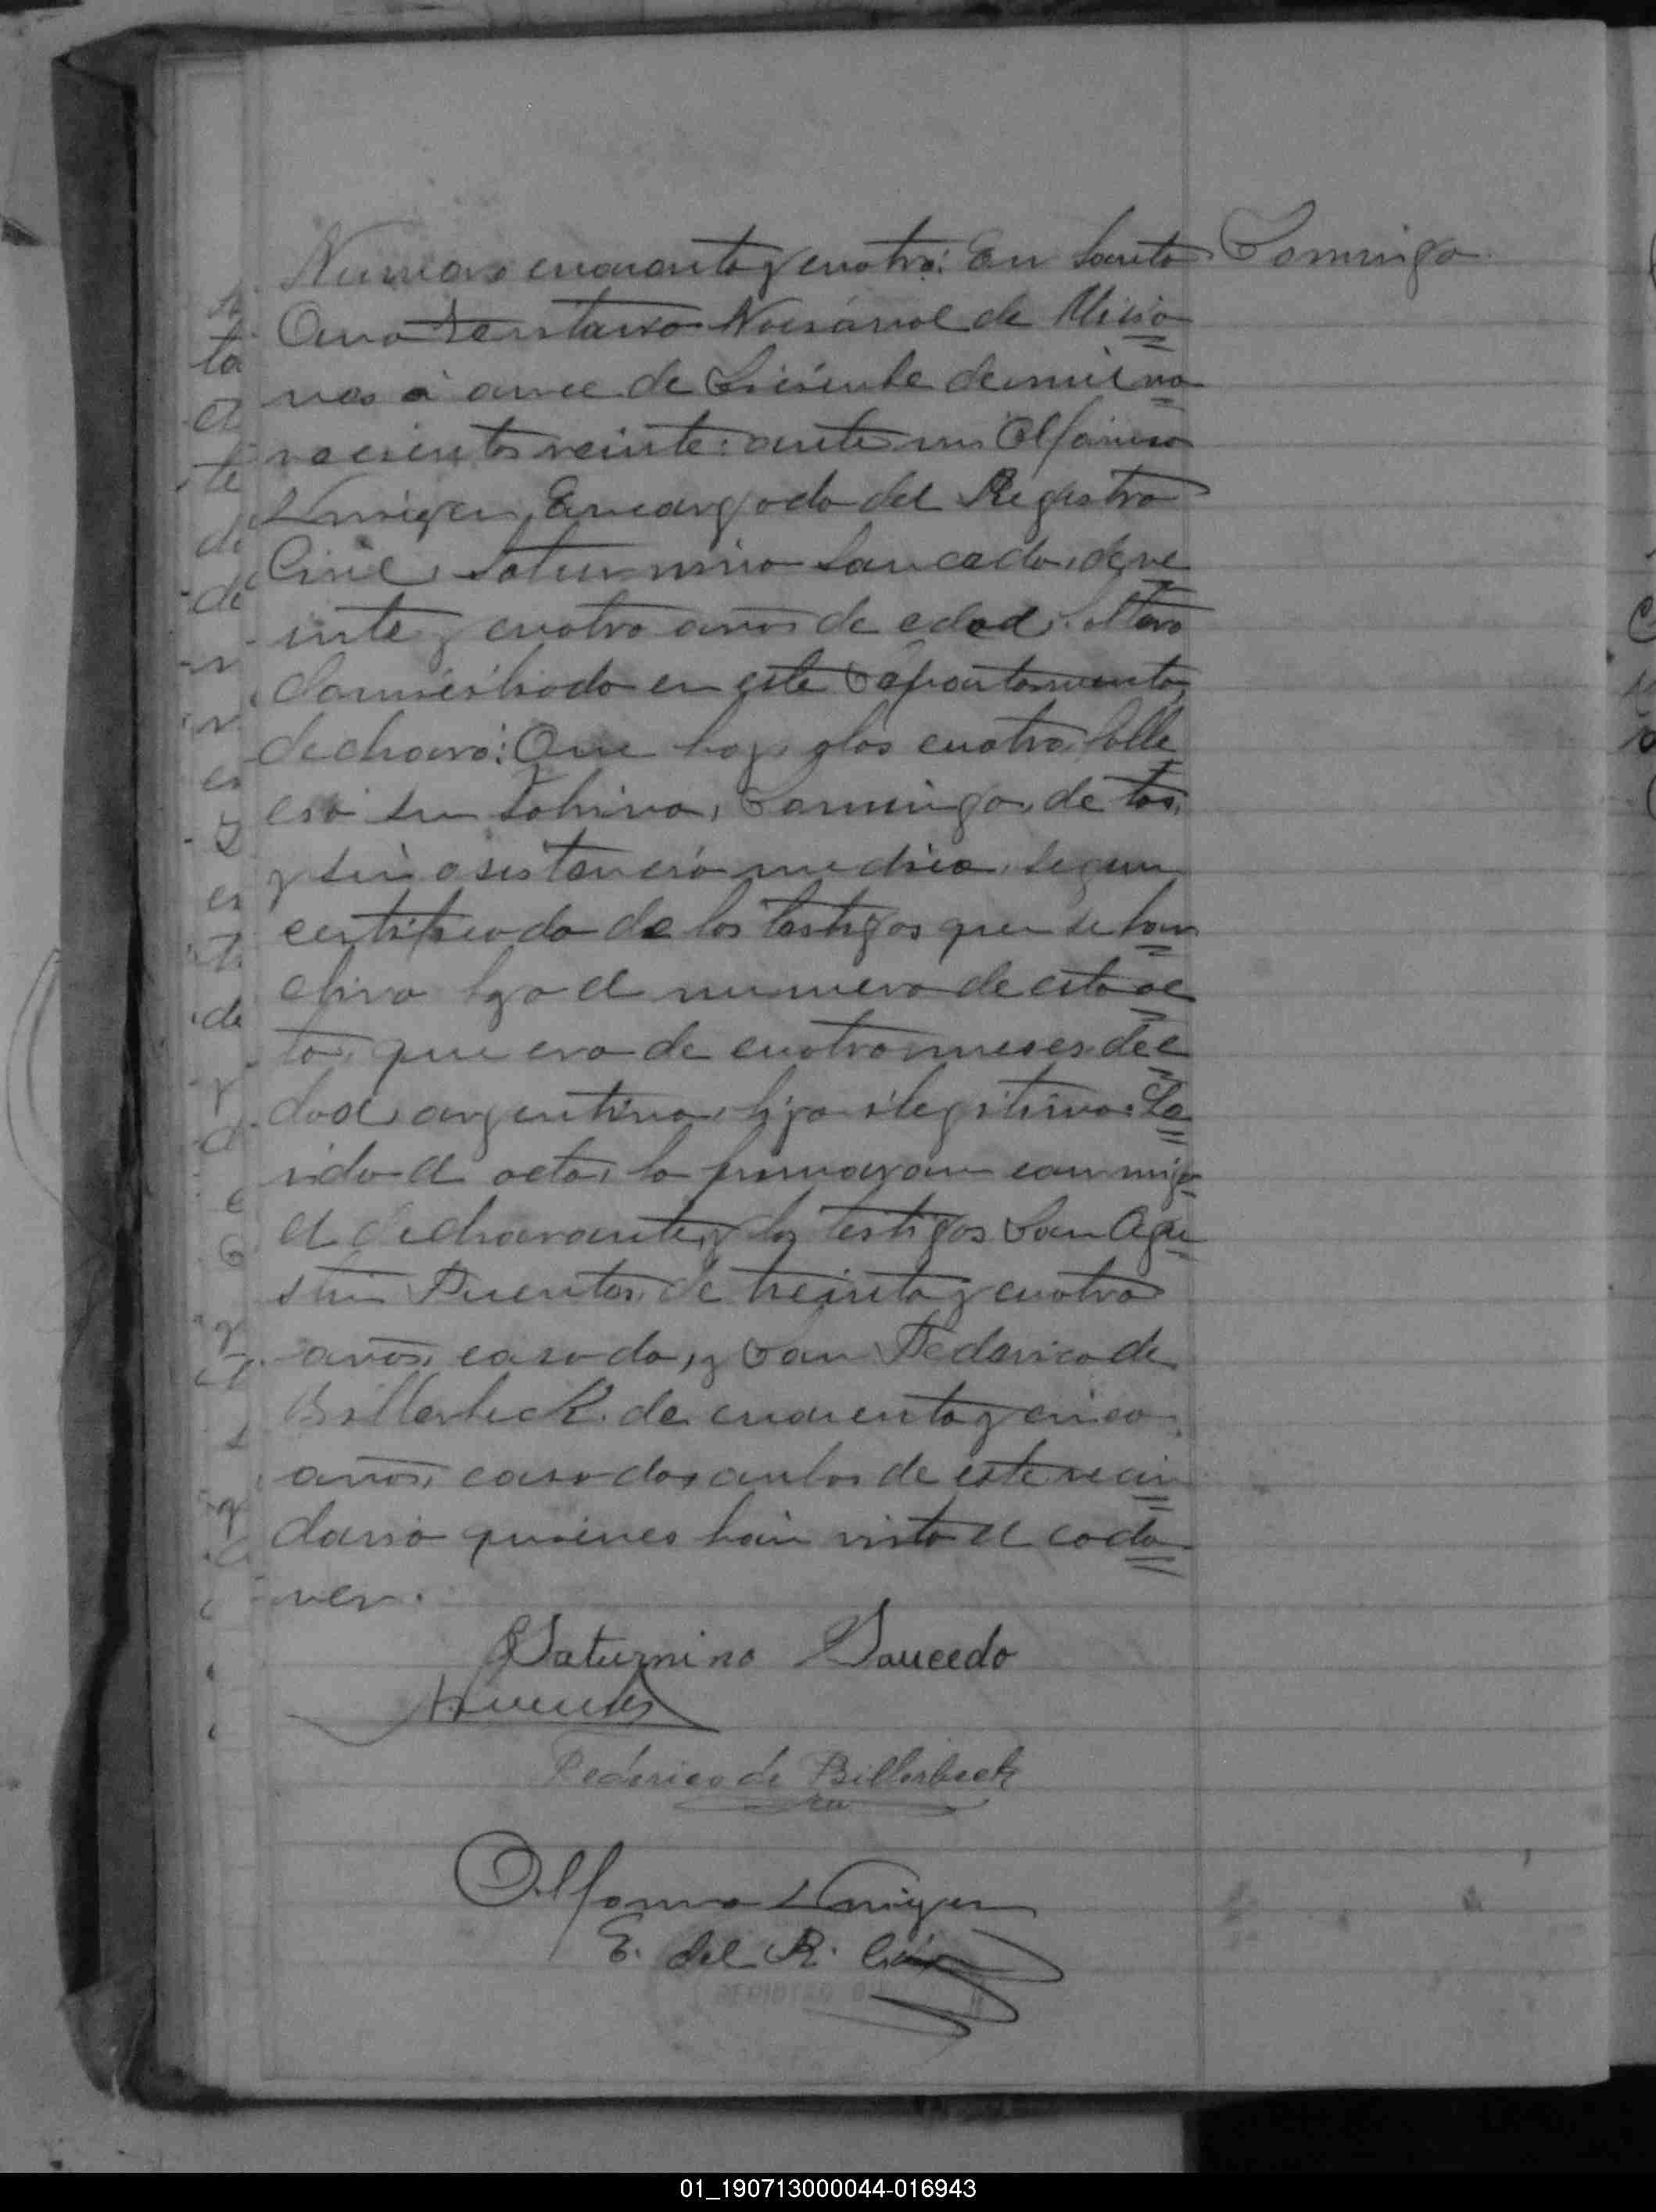 Numero cuarenta y cuatro: En Santa Domingo
Ana Territorio Nacional de Misio
nes a once de Diciembre de mil no
vecientos veinte: ante mi Alfonso
Encargado del Registro
Civil, Saturnino Saucedo, de ve
inte y cuatro años de edad, soltero
domiciliado en este Departamento,
declaró: Que hoy, a las cuatro, falle
ció su sobrino, Domingo, de tos,
y sin asistencia medica, segun
certificado de los testigos que se har
chiva bajo el numero de esta ac
ta, que era de cuatro meses de e
dad, argentino, hijo ilegitimo. Le
ida el acta, la firmaron conmigo
el declarante, y los testigos Don Agu
stin Puentes, de treinta y cuatro
años, casado, y Don Federico de
Billerbeck de cuarenta y cinco
años, casado, ambos de este vecin
dario quienes han visto el cada
ver.
Saturnino Saucedo
APuentes
Federico de Billerbeck
Alfonso
E. del R. Civil
01_190713000044-016943